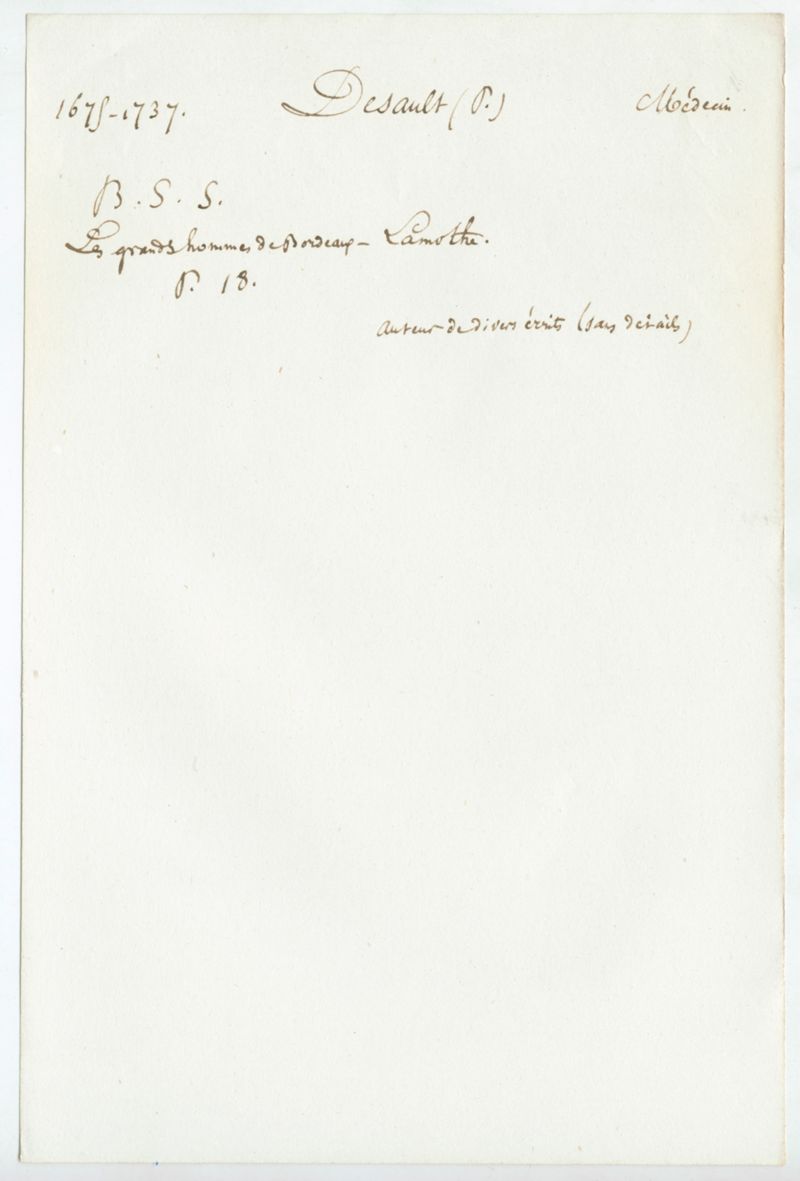 1675-1737. Desault (P.) Médecin.
B. S. S.
Les grands hommes de Bordeaux - Lamothe.
P. 18.
auteur de divers écrits (sans détails)